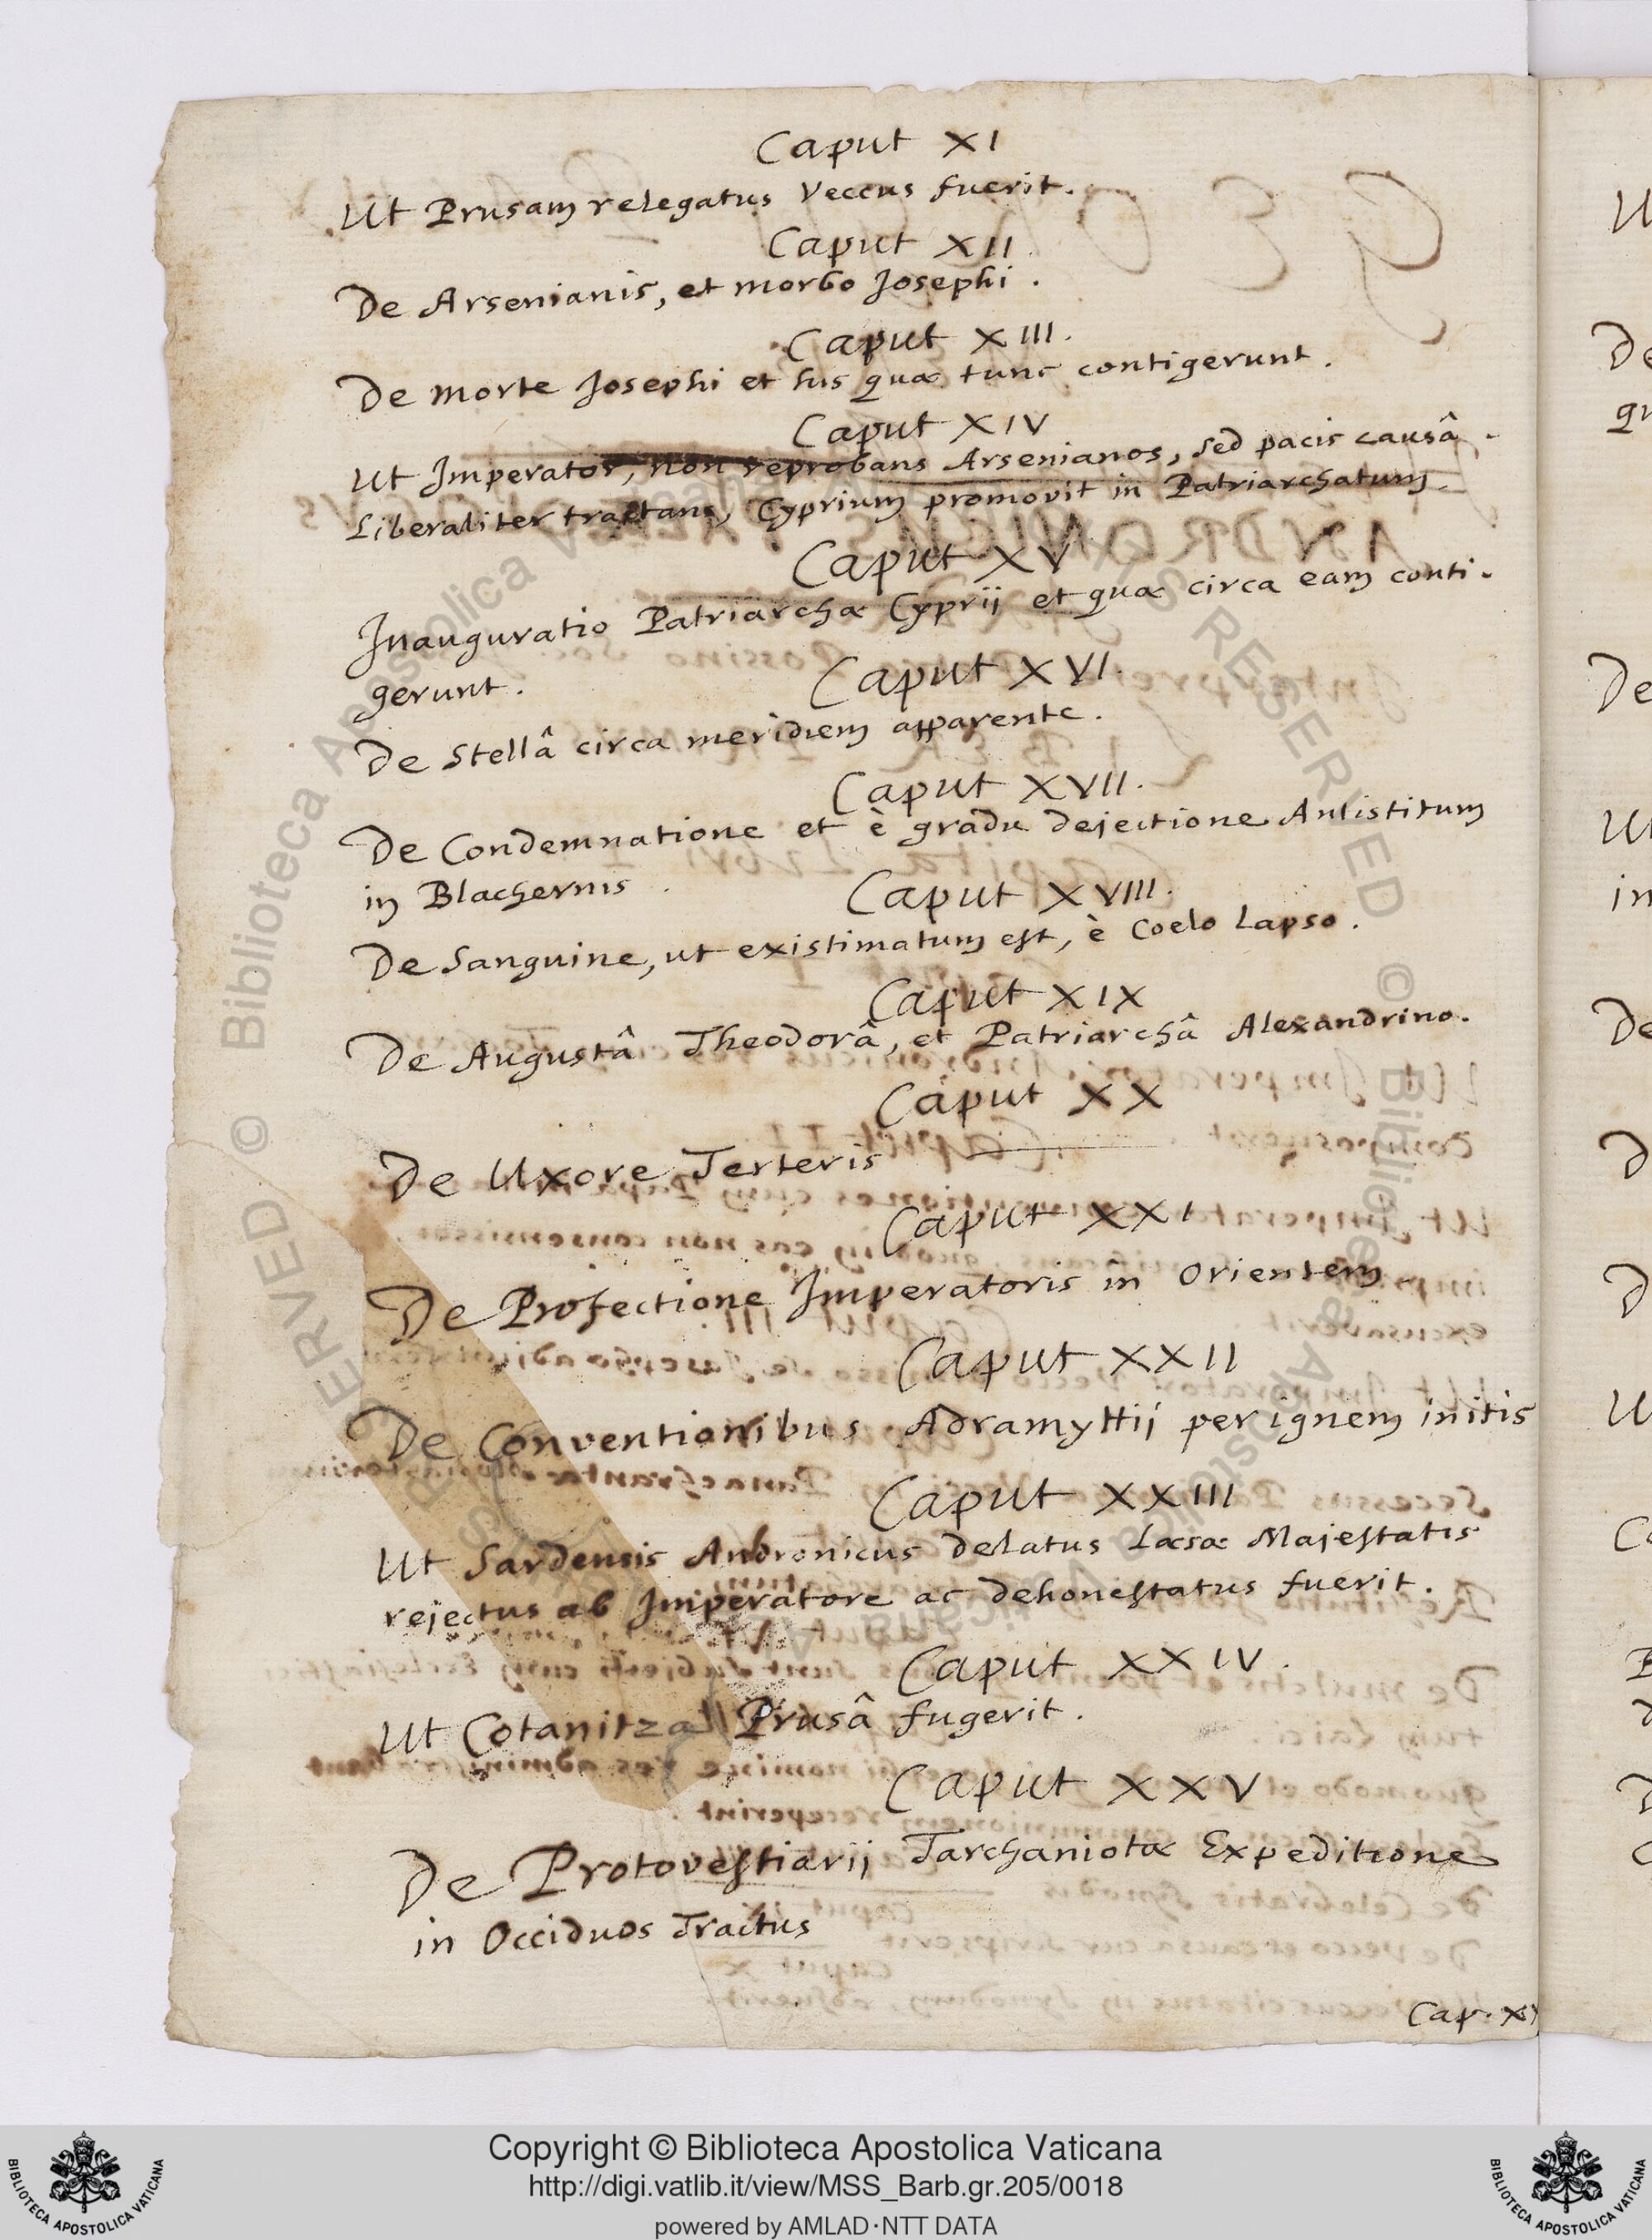 Caput XI
Ut Prusam relegatus Veccus fuerit.
Caput XII
De Arsenianis, et morbo Josephi.
Caput XIII.
De morte Josephi et his quæ tunc contigerunt.
Caput XIV
Ut Imperator, non reprobans Arsenianos, sed pacis causâ
Liberaliter tractans, Cyprium promovit in Patriarchatum.
Caput XV
Inauguratio Patriarchæ Cyprij et quæ circa eam conti-
gerunt.
Caput XVI.
De Stellâ circa meridiem apparente.
Caput XVII.
De Condemnatione et è gradu dejectione Antistitum
in Blachernis.
Caput XVIII.
De Sanguine, ut existimatum est, è Coelo Lapso.
Caput XIX
De Augustâ Theodorâ, et Patriarchâ Alexandrino.
Caput XX
De Uxore Terteris
Caput XXI
De Profectione Imperatoris in Orientem
Caput XXII
De Conventionibus Adramyttij per ignem initis
Caput XXIII
Ut Sardensis Andronicus delatus Læsæ Majestatis
rejectus ab Imperatore ac dehonestatus fuerit.
Caput XXIV.
Ut Cotanitza Prusâ fugerit.
Caput XXV
De Protovestiarij Tarchaniotæ Expeditione
in Occiduos Tractus
Cap.
Copyright © Biblioteca Apostolica Vaticana
http://digi.vatlib.it/view/MSS_Barb.gr.205/0018
powered by AMLAD·NTT DATA
BIBLIOTECA APOSTOLICA VATICANA
BIBLIOTECA APOSTOLICA VATICANA